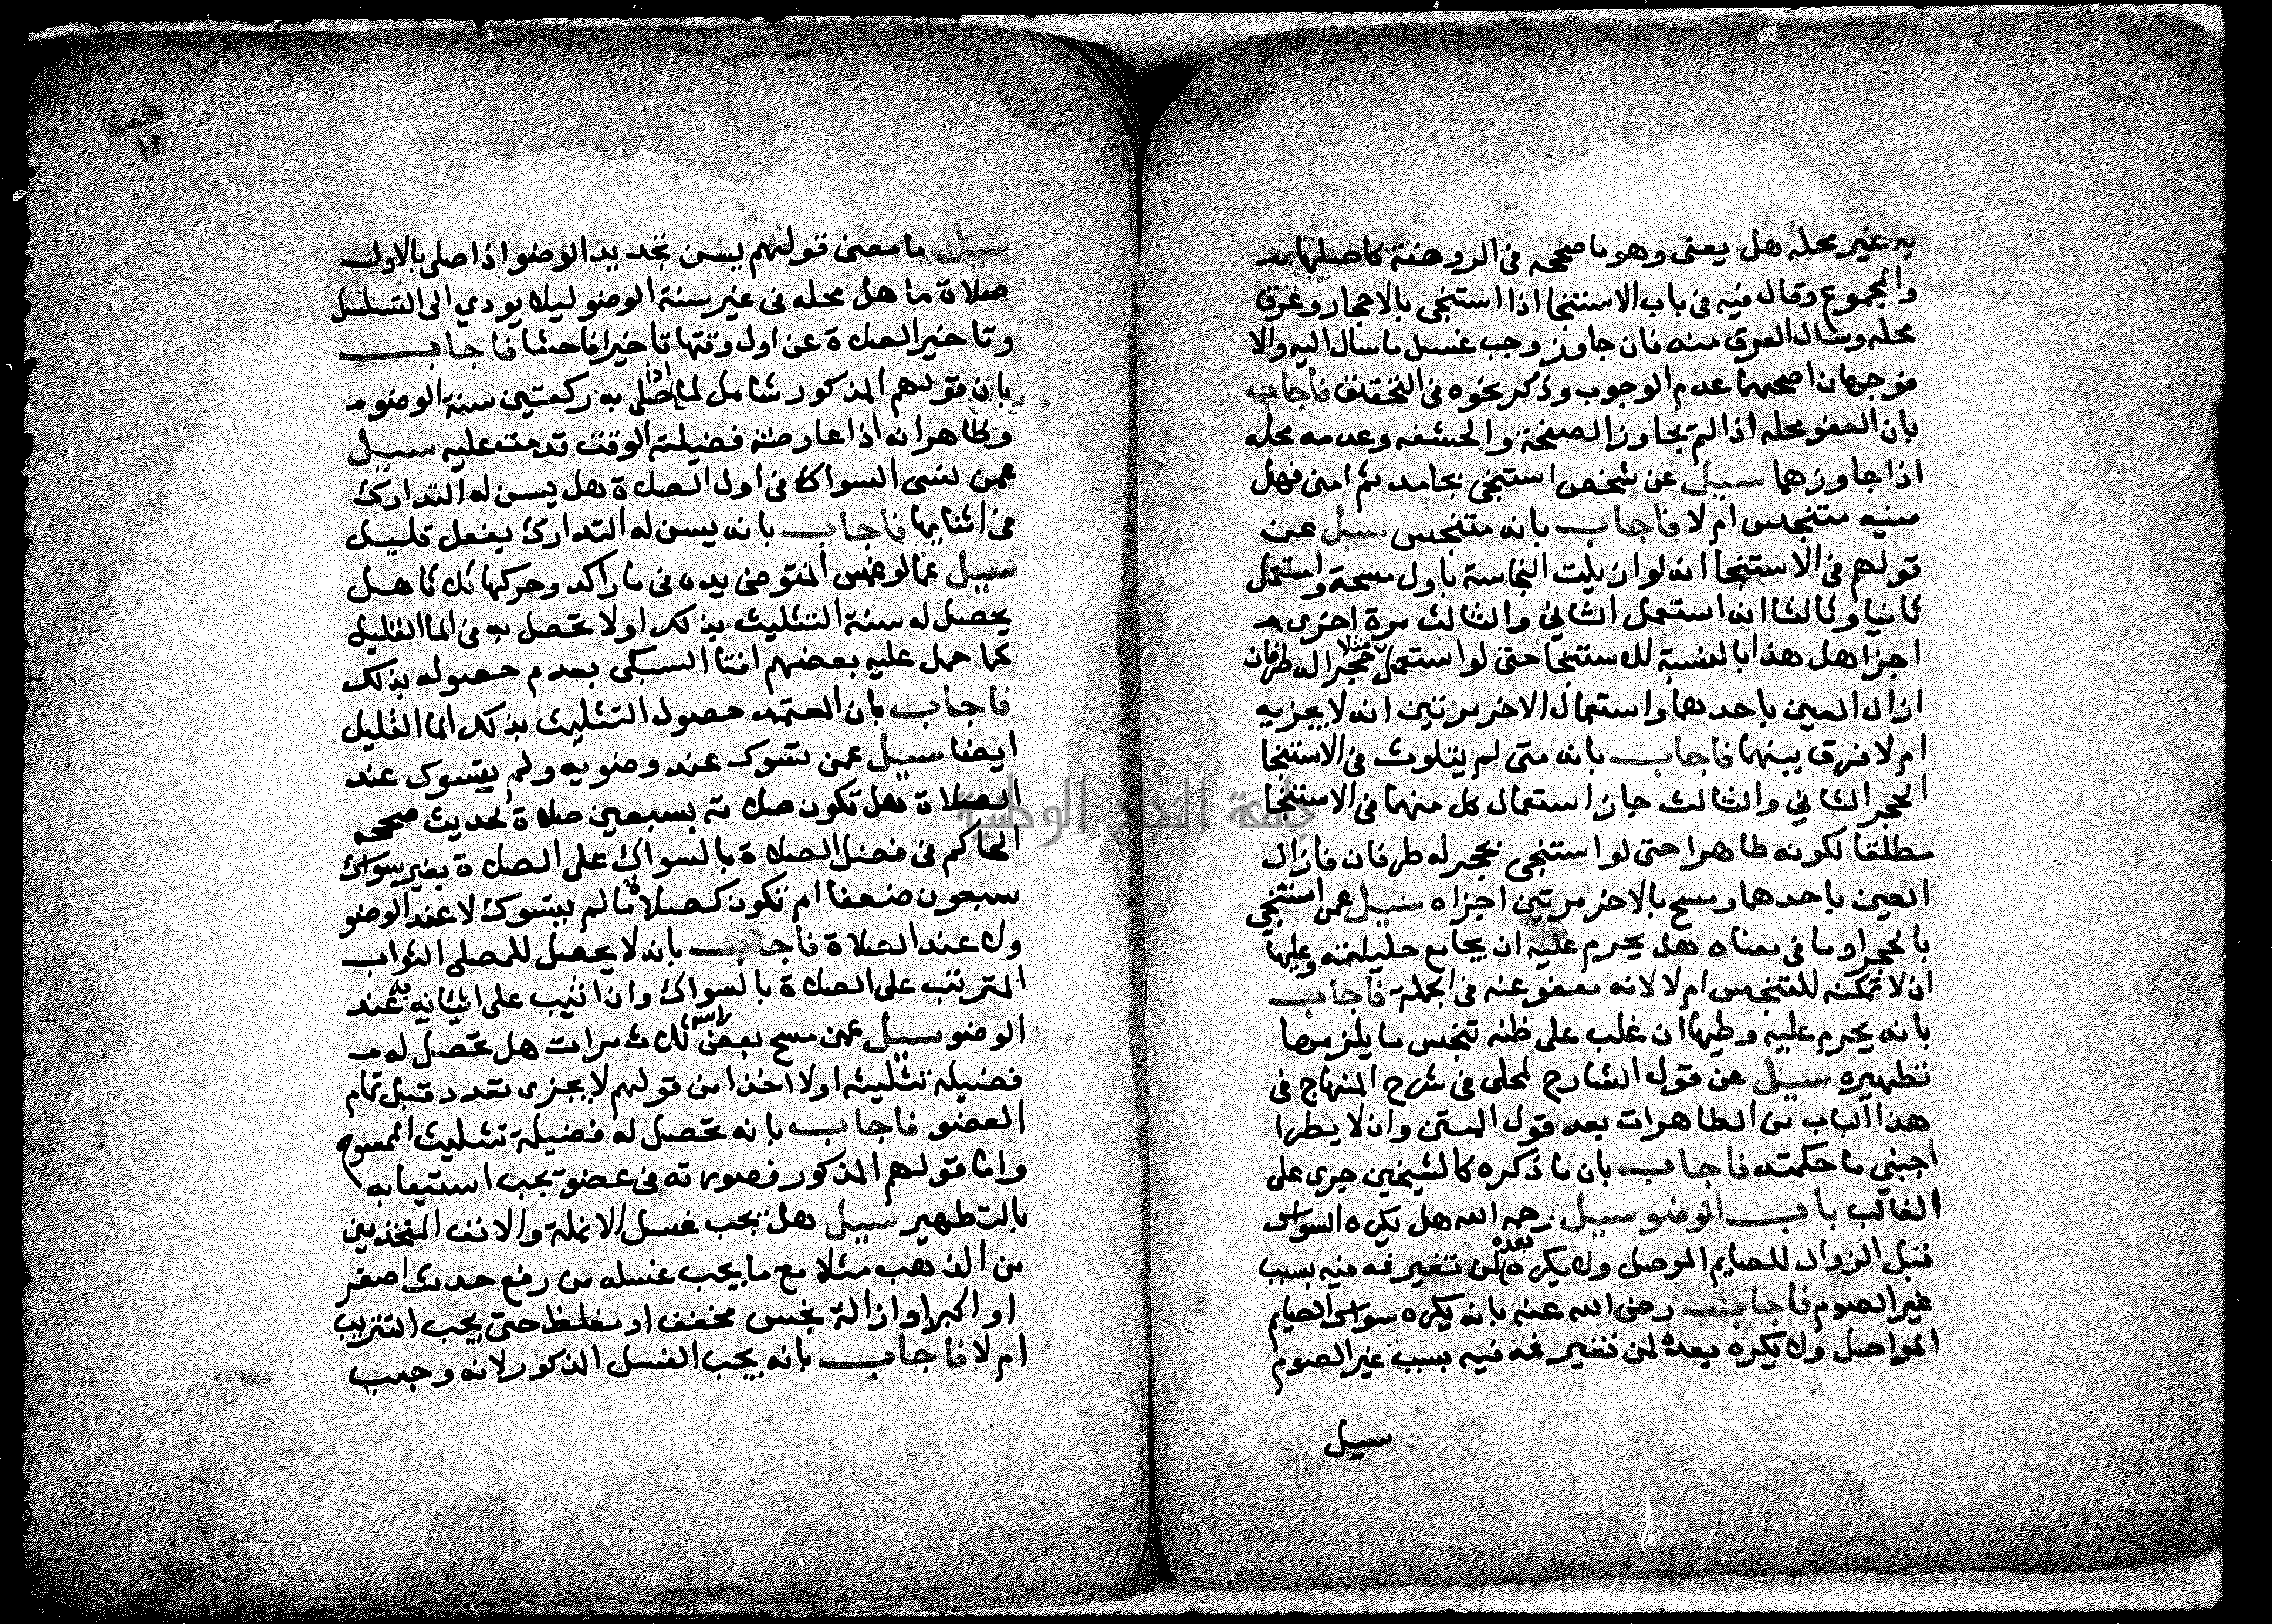 به غير محله هل يعفى وهو ما صححه في الروضة كاصلها
والمجموع وقال فيه في باب الاستنجا اذا استنجى بالاحجار وعرق
محله وسال العرق منه فان جاوز وجب غسل ما سال اليه والا
فوجهان اصحهما عدم الوجوب وذكر نحوه في التحقيق فاجاب
بان العفو محله اذا لم يجاوز الصفحة والحشفه وعدمه محله
اذا جاوزهما سيل عن شخص استنجى بجامد ثم امنى فهل
منيه متنجس ام لا فاجاب بانه متنجس سيل عن
قولهم في الاستنجا انه لو ازيلت النجاسة باول مسحة واستعمل
ثانيا وثالثا انه استعمل الثاني والثالث مرة اخرى
اجزا هل هذا بالنسبة للاستنجا حتى لو استعمل مثلا حجرا له طرفان
ازال العين باحدهما واستعمال الاخر مرتين انه لا يجزيه
ام لا فرق بينهما فاجاب بانه متى لم يتلوث في الاستنجا
الحجر الثاني والثالث جاز استعمال كل منهما في الاستنجا
مطلقا لكونه طاهرا حتى لو استنجى بحجر له طرفان فازال
العين باحدها ومسح بالاخر مرتين اجزاه سيل عمن استنجى
بالحجر او ما في معناه هل يحرم عليه ان يجامع حليلته وعليها
ان لا تمكنه للتنجس ام لا لانه معفو عنه في الجملة فاجاب
بانه يحرم عليه وطيها ان غلب على ظنه تنجس ما يلزمها
تطهيره سيل عن قول الشارح المحلى في شرح المنهاج في
هذا الباب من الطاهرات بعد قول المتن وان لا يطرا
اجنبي ما حكمته فاجاب بان ما ذكره كالشيخين جرى على
الغالب باب الوضو سيل رحمه الله هل يكره السواك
قبل الزوال للصايم المواصل ولا يكره بعده لمن تغير فمه فيه بسبب
غير الصوم فاجاب رضى الله عنه بانه يكره سواك الصايم
المواصل ولا يكره بعده لمن تغير فمه فيه بسبب غير الصوم
سيل
سيل ما معنى قولهم يسن تجديد الوضو اذا صلى بالاول
صلاة ما هل محله في غير سنة الوضو ليلا يودي الى التسلسل
وتاخير الصلاة عن اول وقتها تاخيرا فاحشا فاجاب
بان قولهم المذكور شامل لما اذا صلى به ركعتين سنة الوضو
وظاهر انه اذا عارضته فضيلة الوقت قدمت عليه سيل
عمن نسى السواك في اول الصلاة هل يسن له التدارك
في اثنايها فاجاب بانه يسن له التدارك بفعل قليل
سيل عما لو غمس المتوضى يده في ما راكد وحركها ثلاثا هل
يحصل له سنة التثليث بذلك اولا تحصل به في الما القليل
كما حمل عليه بعضهم افتا السبكي بعدم حصوله بذلك
فاجاب بان المعتمد حصول التثليث بذلك الما القليل
ايضا سيل عمن تسوك عند وضويه ولم يتسوك عند
الصلاة هل تكون صلاته بسبعين صلاة لحديث صححه
الحاكم في فضل الصلاة بالسواك على الصلاة بغير سواك
سبعون ضعفا ام تكون كصلاة ما لم يتسوك لا عند الوضو
ولا عند الصلاة فاجاب بانه لا يحصل للمصلى الثواب
المترتب على الصلاة بالسواك وان اثيب على اتيانه به عند
الوضو سيل عمن مسح بعض راسه ثلاث مرات هل تحصل له
فضيلة تثليثه اولا اخذا من قولهم لا يجزى تعدد قبل تمام
العضو فاجاب بانه تحصل له فضيلة تثليث الممسوح
واما قولهم المذكور فصورته في عضو يجب استيعابه
بالتطهير سيل هل يجب غسل الانملة والانف المتخذين
من الذهب مثلا مع ما يجب غسله من رفع حدث اصغر
او اكبر او ازالة نجس مخفف او مغلظ حتى يجب التتريب
ام لا فاجاب بانه يجب الغسل المذكور لانه وجب
جامعة النجاح الوطنية